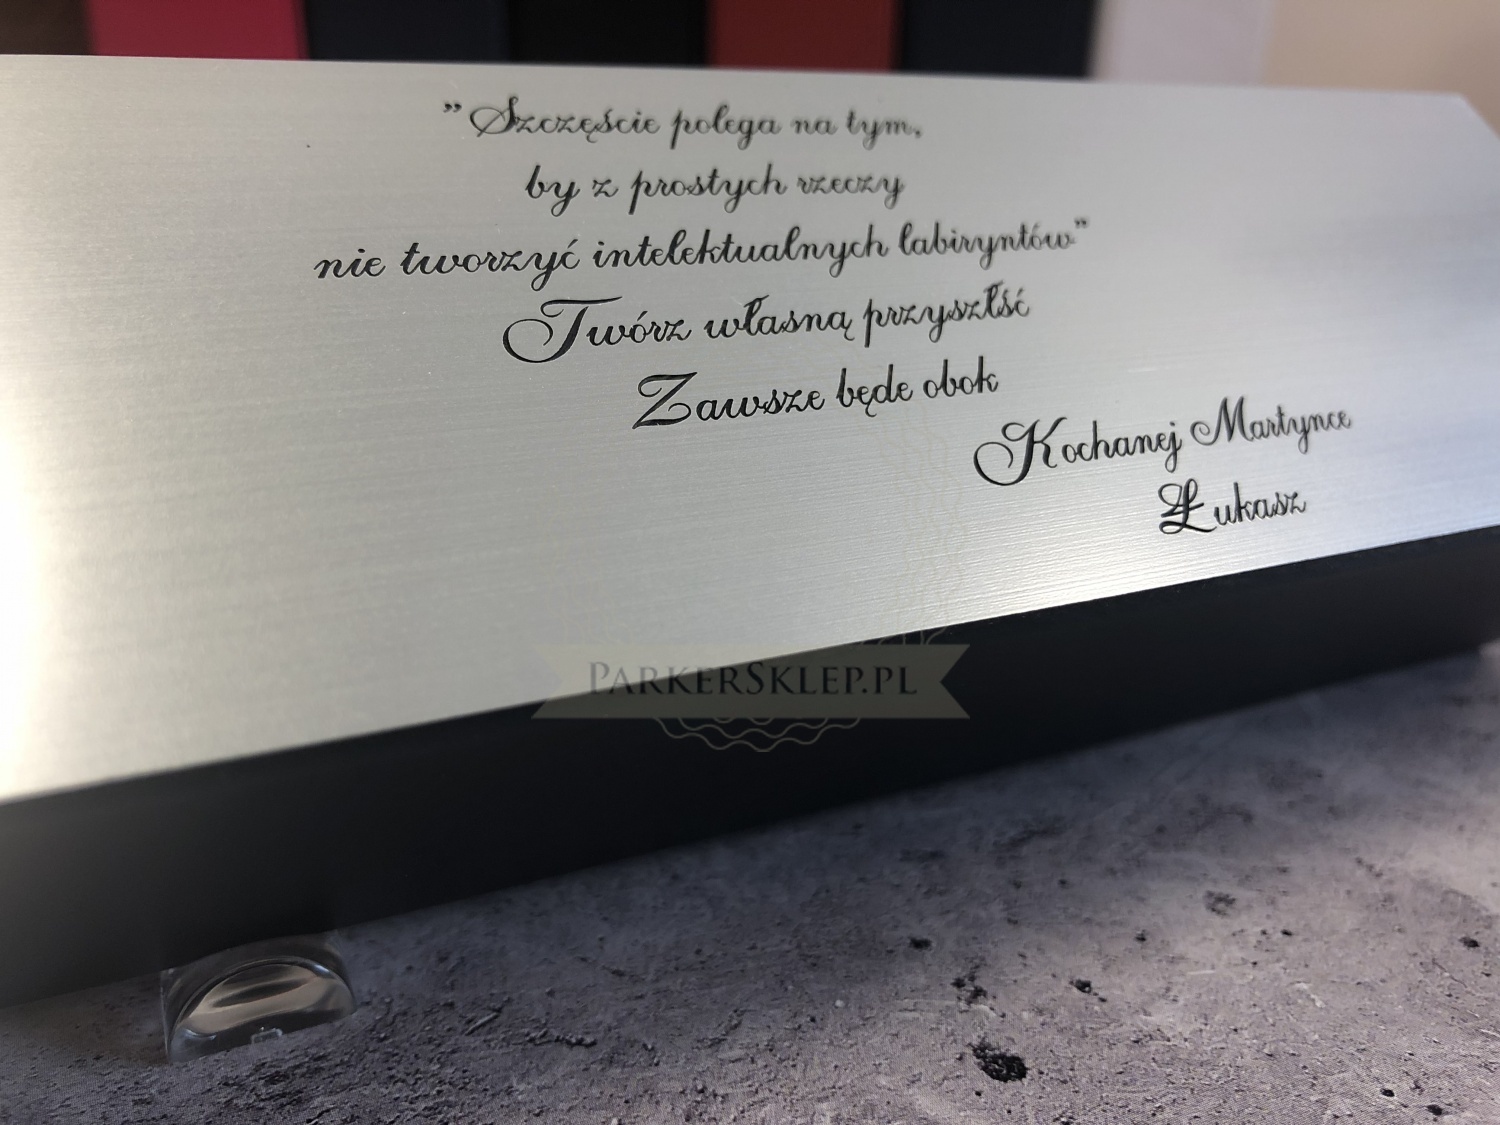 "Szczęście polega na tym,
by z prostych rzeczy
nie tworzyć intelektualnych labiryntów"
Twórz własną przyszłść
Zawsze będe obok
Kochanej Martynce
Łukasz
ParkerSklep.pl